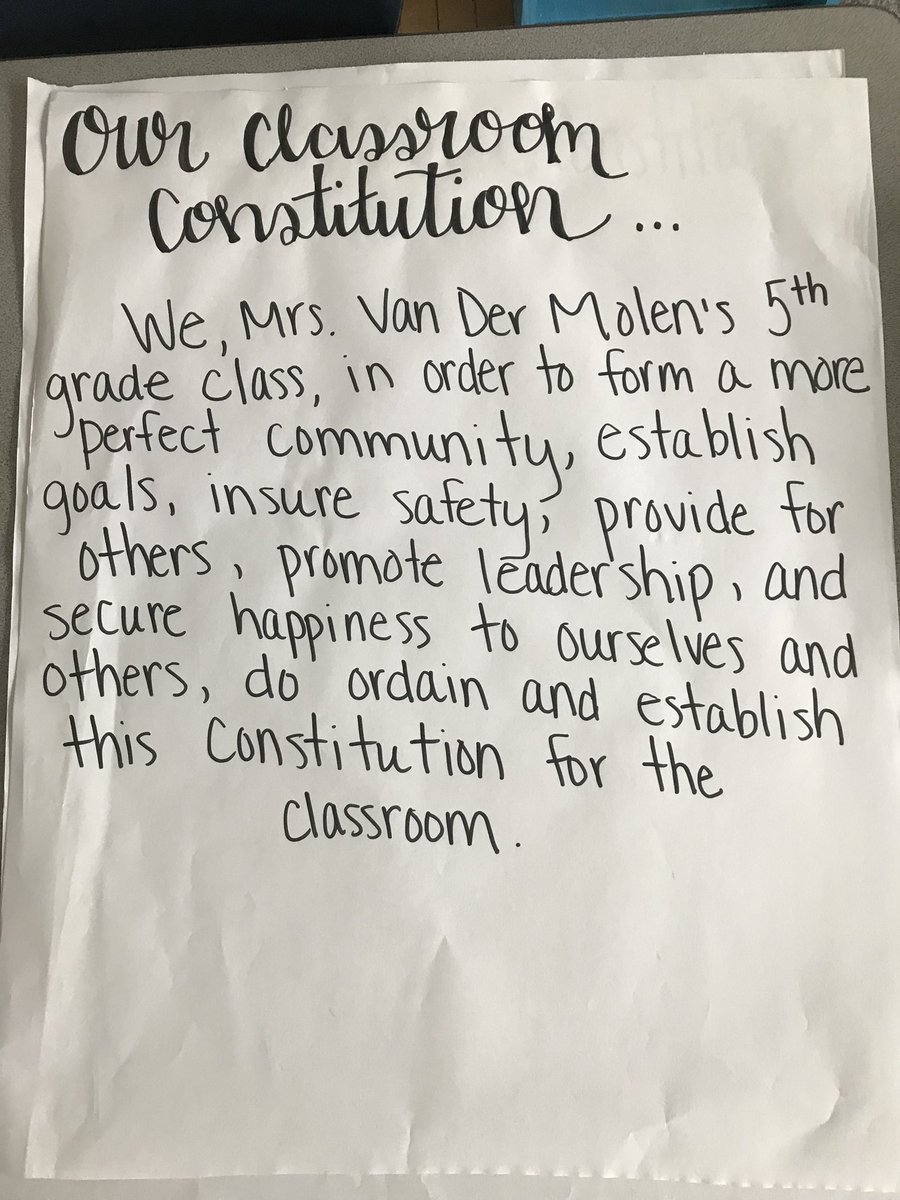 Our Classroom
Constitution...
We, Mrs. Van Der Molen's 5th
grade class, in order to form a more
perfect community, establish
goals, insure safety, provide for
others, promote leadership, and
secure happiness to ourselves and
others, do ordain and establish
this Constitution for the
classroom.